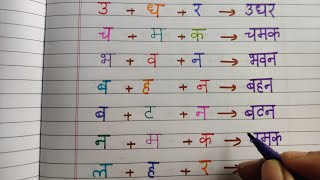 उ + ध + र → उधर
च + म + क → चमक
भ + व + न → भवन
ब + ह + न → बहन
ब + ट + न → बटन
न + म + क → नमक
ल + ह + र →